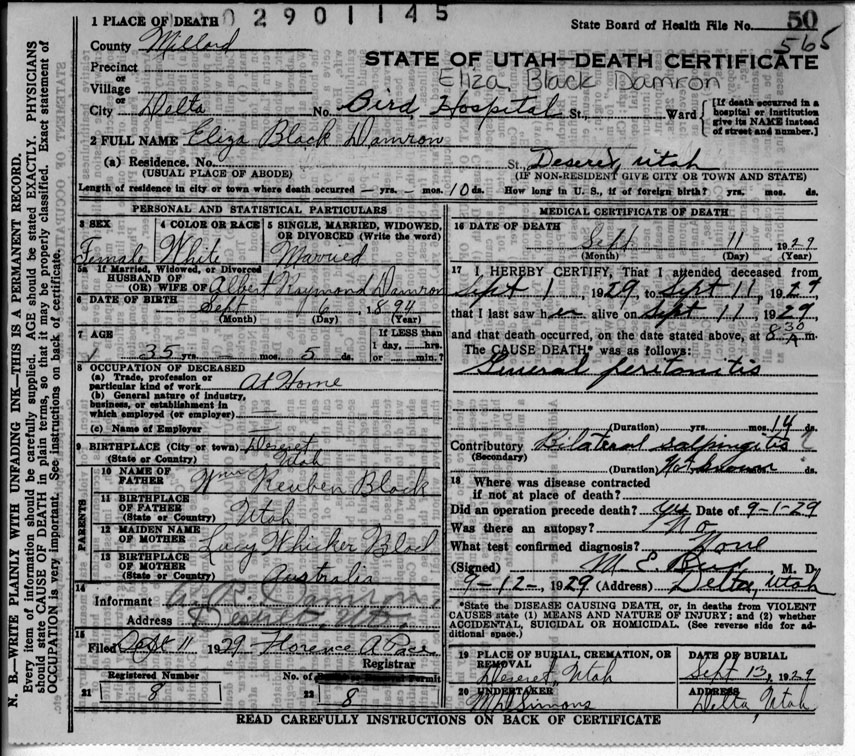 02901145
State Board of Health File No. 50
565
1 PLACE OF DEATH
County Millard
STATE OF UTAH—DEATH CERTIFICATE
Precinct
or
Village
Eliza Black Damron
or
City Delta No. Bird Hospital St., Ward
[If death occurred in a hospital or institution give its NAME instead of street and number.]
2 FULL NAME Eliza Black Damron
(a) Residence. No. St. Deseret, Utah
(USUAL PLACE OF ABODE) (IF NON-RESIDENT GIVE CITY OR TOWN AND STATE)
Length of residence in city or town where death occurred — yrs. — mos. 10 ds. How long in U. S., if of foreign birth? yrs. mos. ds.
PERSONAL AND STATISTICAL PARTICULARS
3 SEX
Female
4 COLOR OR RACE
White
5 SINGLE, MARRIED, WIDOWED, OR DIVORCED (Write the word)
Married
5a If Married, Widowed, or Divorced
HUSBAND OF
(OR) WIFE OF Albert Raymond Damron
6 DATE OF BIRTH Sept 6, 1894
(Month) (Day) (Year)
7 AGE
35 yrs. — mos. 5 ds.
If LESS than
1 day, hrs.
or min.?
8 OCCUPATION OF DECEASED
(a) Trade, profession or
particular kind of work At Home
(b) General nature of industry,
business, or establishment in
which employed (or employer) —
(c) Name of Employer —
9 BIRTHPLACE (City or town) Deseret
(State or Country) Utah
PARENTS
10 NAME OF
FATHER Wm Reuben Black
11 BIRTHPLACE
OF FATHER
(State or Country) Utah
12 MAIDEN NAME
OF MOTHER Lacy Whicker Black
13 BIRTHPLACE
OF MOTHER
(State or Country) Australia
14
Informant A. R. Damron,
Address Deseret, Ut.
15
Filed Sept 11 1929 Florence A Pace
Registrar
Registered Number
21 8
No. of Permit
22 8
MEDICAL CERTIFICATE OF DEATH
16 DATE OF DEATH
Sept 11, 1929
(Month) (Day) (Year)
17 I HEREBY CERTIFY, That I attended deceased from
Sept 1, 1929, to Sept 11, 1929
that I last saw her alive on Sept 11, 1929,
and that death occurred, on the date stated above, at 8 30 A m.
The CAUSE DEATH* was as follows:
General peritonitis
(Duration) yrs. mos. 14 ds.
Contributory Bilateral salpingitis ?
(Secondary)
(Duration) Not known ds.
18 Where was disease contracted
if not at place of death?
Did an operation precede death? yes Date of 9-1-29
Was there an autopsy? No
What test confirmed diagnosis? None
(Signed) M. E. Bird M. D.
9-12-, 1929 (Address) Delta, Utah
*State the DISEASE CAUSING DEATH, or, in deaths from VIOLENT
CAUSES state (1) MEANS AND NATURE OF INJURY; and (2) whether
ACCIDENTAL, SUICIDAL OR HOMICIDAL. (See reverse side for ad-
ditional space.)
19 PLACE OF BURIAL, CREMATION, OR
REMOVAL
Deseret, Utah
DATE OF BURIAL
Sept 13, 1929
20 UNDERTAKER
Simons
ADDRESS
Delta, Utah
READ CAREFULLY INSTRUCTIONS ON BACK OF CERTIFICATE
N. B.—WRITE PLAINLY WITH UNFADING INK—THIS IS A PERMANENT RECORD.
Every item of information should be carefully supplied. AGE should be stated EXACTLY. PHYSICIANS
should state CAUSE OF DEATH in plain terms, so that it may be properly classified. Exact statement of
OCCUPATION is very important. See instructions on back of certificate.